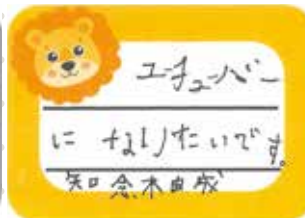 ユーチューバー
になりたいです。
知念木由成